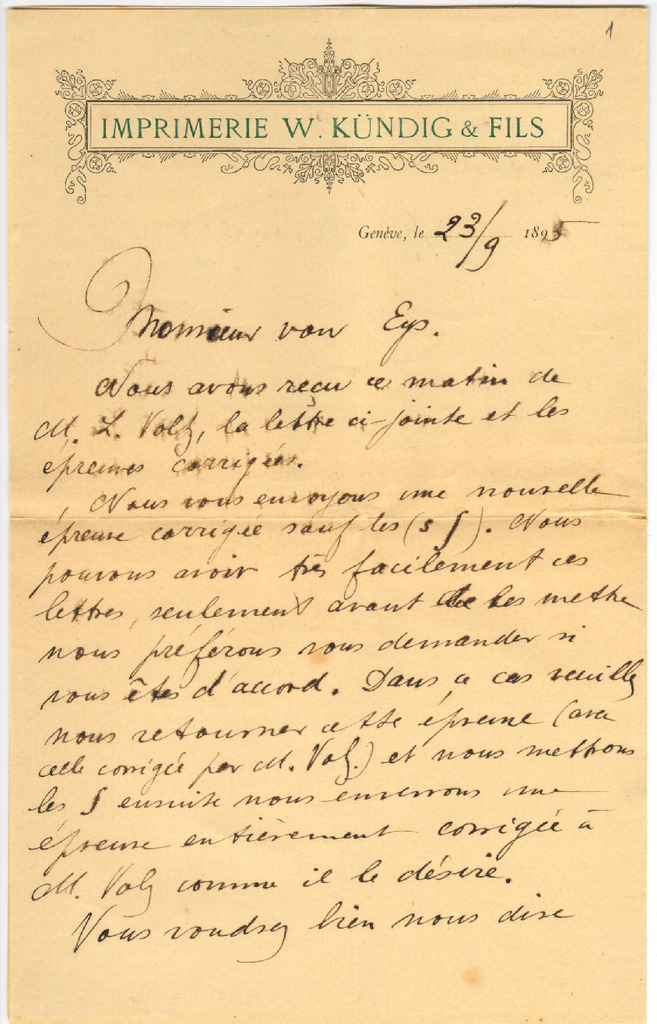 1
IMPRIMERIE W. KÜNDIG & FILS
Genève, le 23/9 1895
Monsieur van Eys.
Nous avons reçu ce matin de
M. L. Volz, la lettre ci-jointe et les
épreuves corrigées.
Nous vous envoyons une nouvelle
épreuve corrigée sauf les (s ſ). Nous
pouvons avoir très facilement ces
lettres, seulement avant de les mettre
nous préférons vous demander si
vous êtes d'accord. Dans ce cas veuillez
nous retourner cette épreuve (avec
celle corrigée par M. Volz.) et nous mettrons
les ſ ensuite nous enverrons une
épreuve entièrement corrigée à
M. Volz comme il le désire.
Vous voudrez bien nous dire